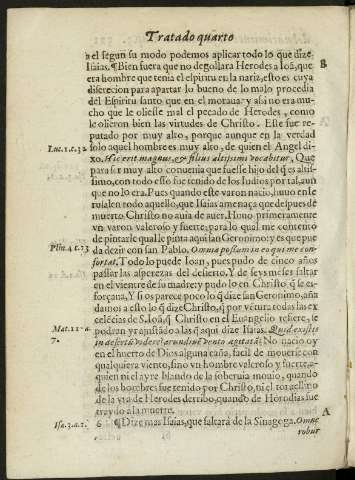 Tratado quarto
a el segun su modo podemos aplicar todo lo que dize
Isaias. ¶ Bien fuera que no degollara Herodes a Ioã, que
era hombre que tenia el espiritu en la nariz, esto es cuya
discrecion para apartar lo bueno de lo malo procedia
del Espiritu santo que en el moraua: y assi no era mu-
cho que le oliesse mal el pecado de Herodes, como
le olieron bien las virtudes de Christo. Este fue re-
putado por muy alto, porque aunque en la verdad
solo aquel hombre es muy alto, de quien el Angel di-
xo. Hic erit magnus, & filius altissimi vocabitur, Que
para ser muy alto conuenia que fuesse hijo del q̃ es altis-
simo, con todo esso fue tenido de los Iudios por tal, aun
que no lo era. Pues quando este varon nacio, huuo en Ie
rusalen todo aquello, que Isaias amenaça que despues de
muerto Christo no auia de auer. Huuo primeramente
vn varon valeroso y fuerte; para lo qual me contento
de pintarle qual le pinta aqui san Geronimo: y es que pue
da dezir con san Pablo. Omnia possum in eo qui me con-
fortat, Todo lo puede Ioan, pues pudo de cinco años
passar las asperezas del desierto, Y de seys meses saltar
en el vientre de su madre: y pudolo en Christo q̃ le es-
forçaua, Y si os parece poco lo q̃ dize san Geronimo, aña
damos a esto lo q̃ dize Christo, q̃ por vẽtura todas las ex
celẽcias de S. Ioã, q̃ Christo en el Euangelio refiere, se
podran yr ajustãdo a las q̃ aqui dize Isaias. Quid existis
in desertũ videre? arundinẽ vento agitatã? No nacio oy
en el huerto de Dios alguna caña, facil de mouerse con
qualquiera viento, sino vn hombre valeroso y fuerte, a-
quien ni el ayre blando de la soberuia mouio, quando
de los hombres fue tenido por Christo, ni el toruellino
de la yra de Herodes derribo, quando de Herodias fue
traydo a la muerte.
6 ¶ Dize mas Isaias, que faltarà de la Sinagoga. Omne
robur
B
Luc. 1. c. 32
Phi. 4. c. 13
Mat. 11. a.
7.
A
Isa. 3. a. 2.